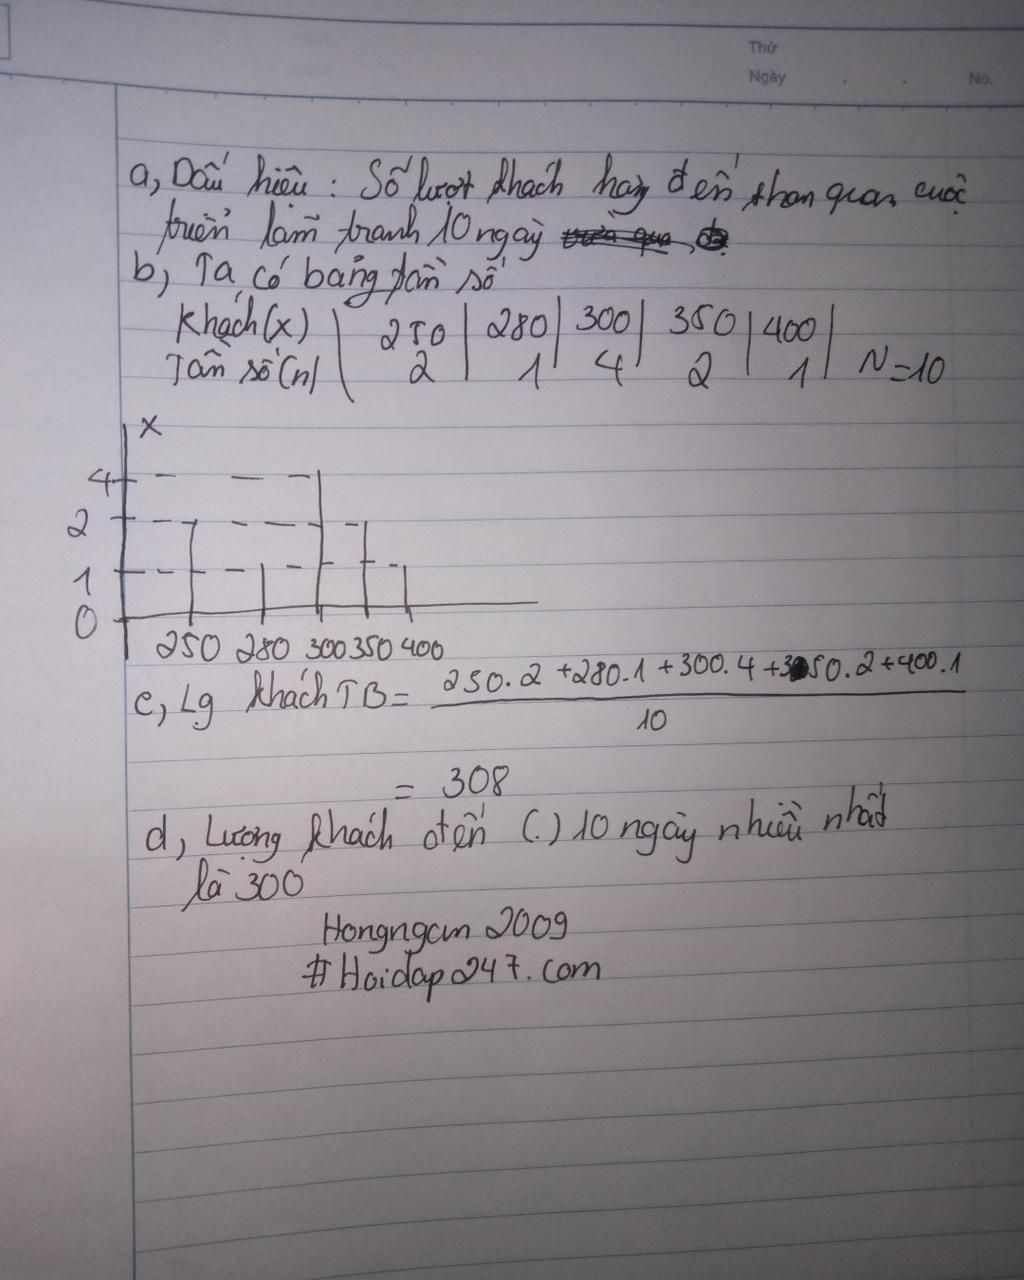 Thứ
Ngày . . No.
a, Dấu hiệu : Số lượt khách hàg đến than quan cuộc
triển lãm tranh 10 ngày
b, Ta có bảng tần số
Khách(x) | 250 | 280 | 300 | 350 | 400 |
Tần số(n) | 2 | 1 | 4 | 2 | 1 | N=10
x
4
2
1
0
250 280 300 350 400
c, Lg khách TB = 250.2 +280.1 +300.4 +350.2 +400.1
10
= 308
d, Lượng khách đến (.) 10 ngày nhiều nhất
là 300
Hongngan 2009
#Hoidap247.com